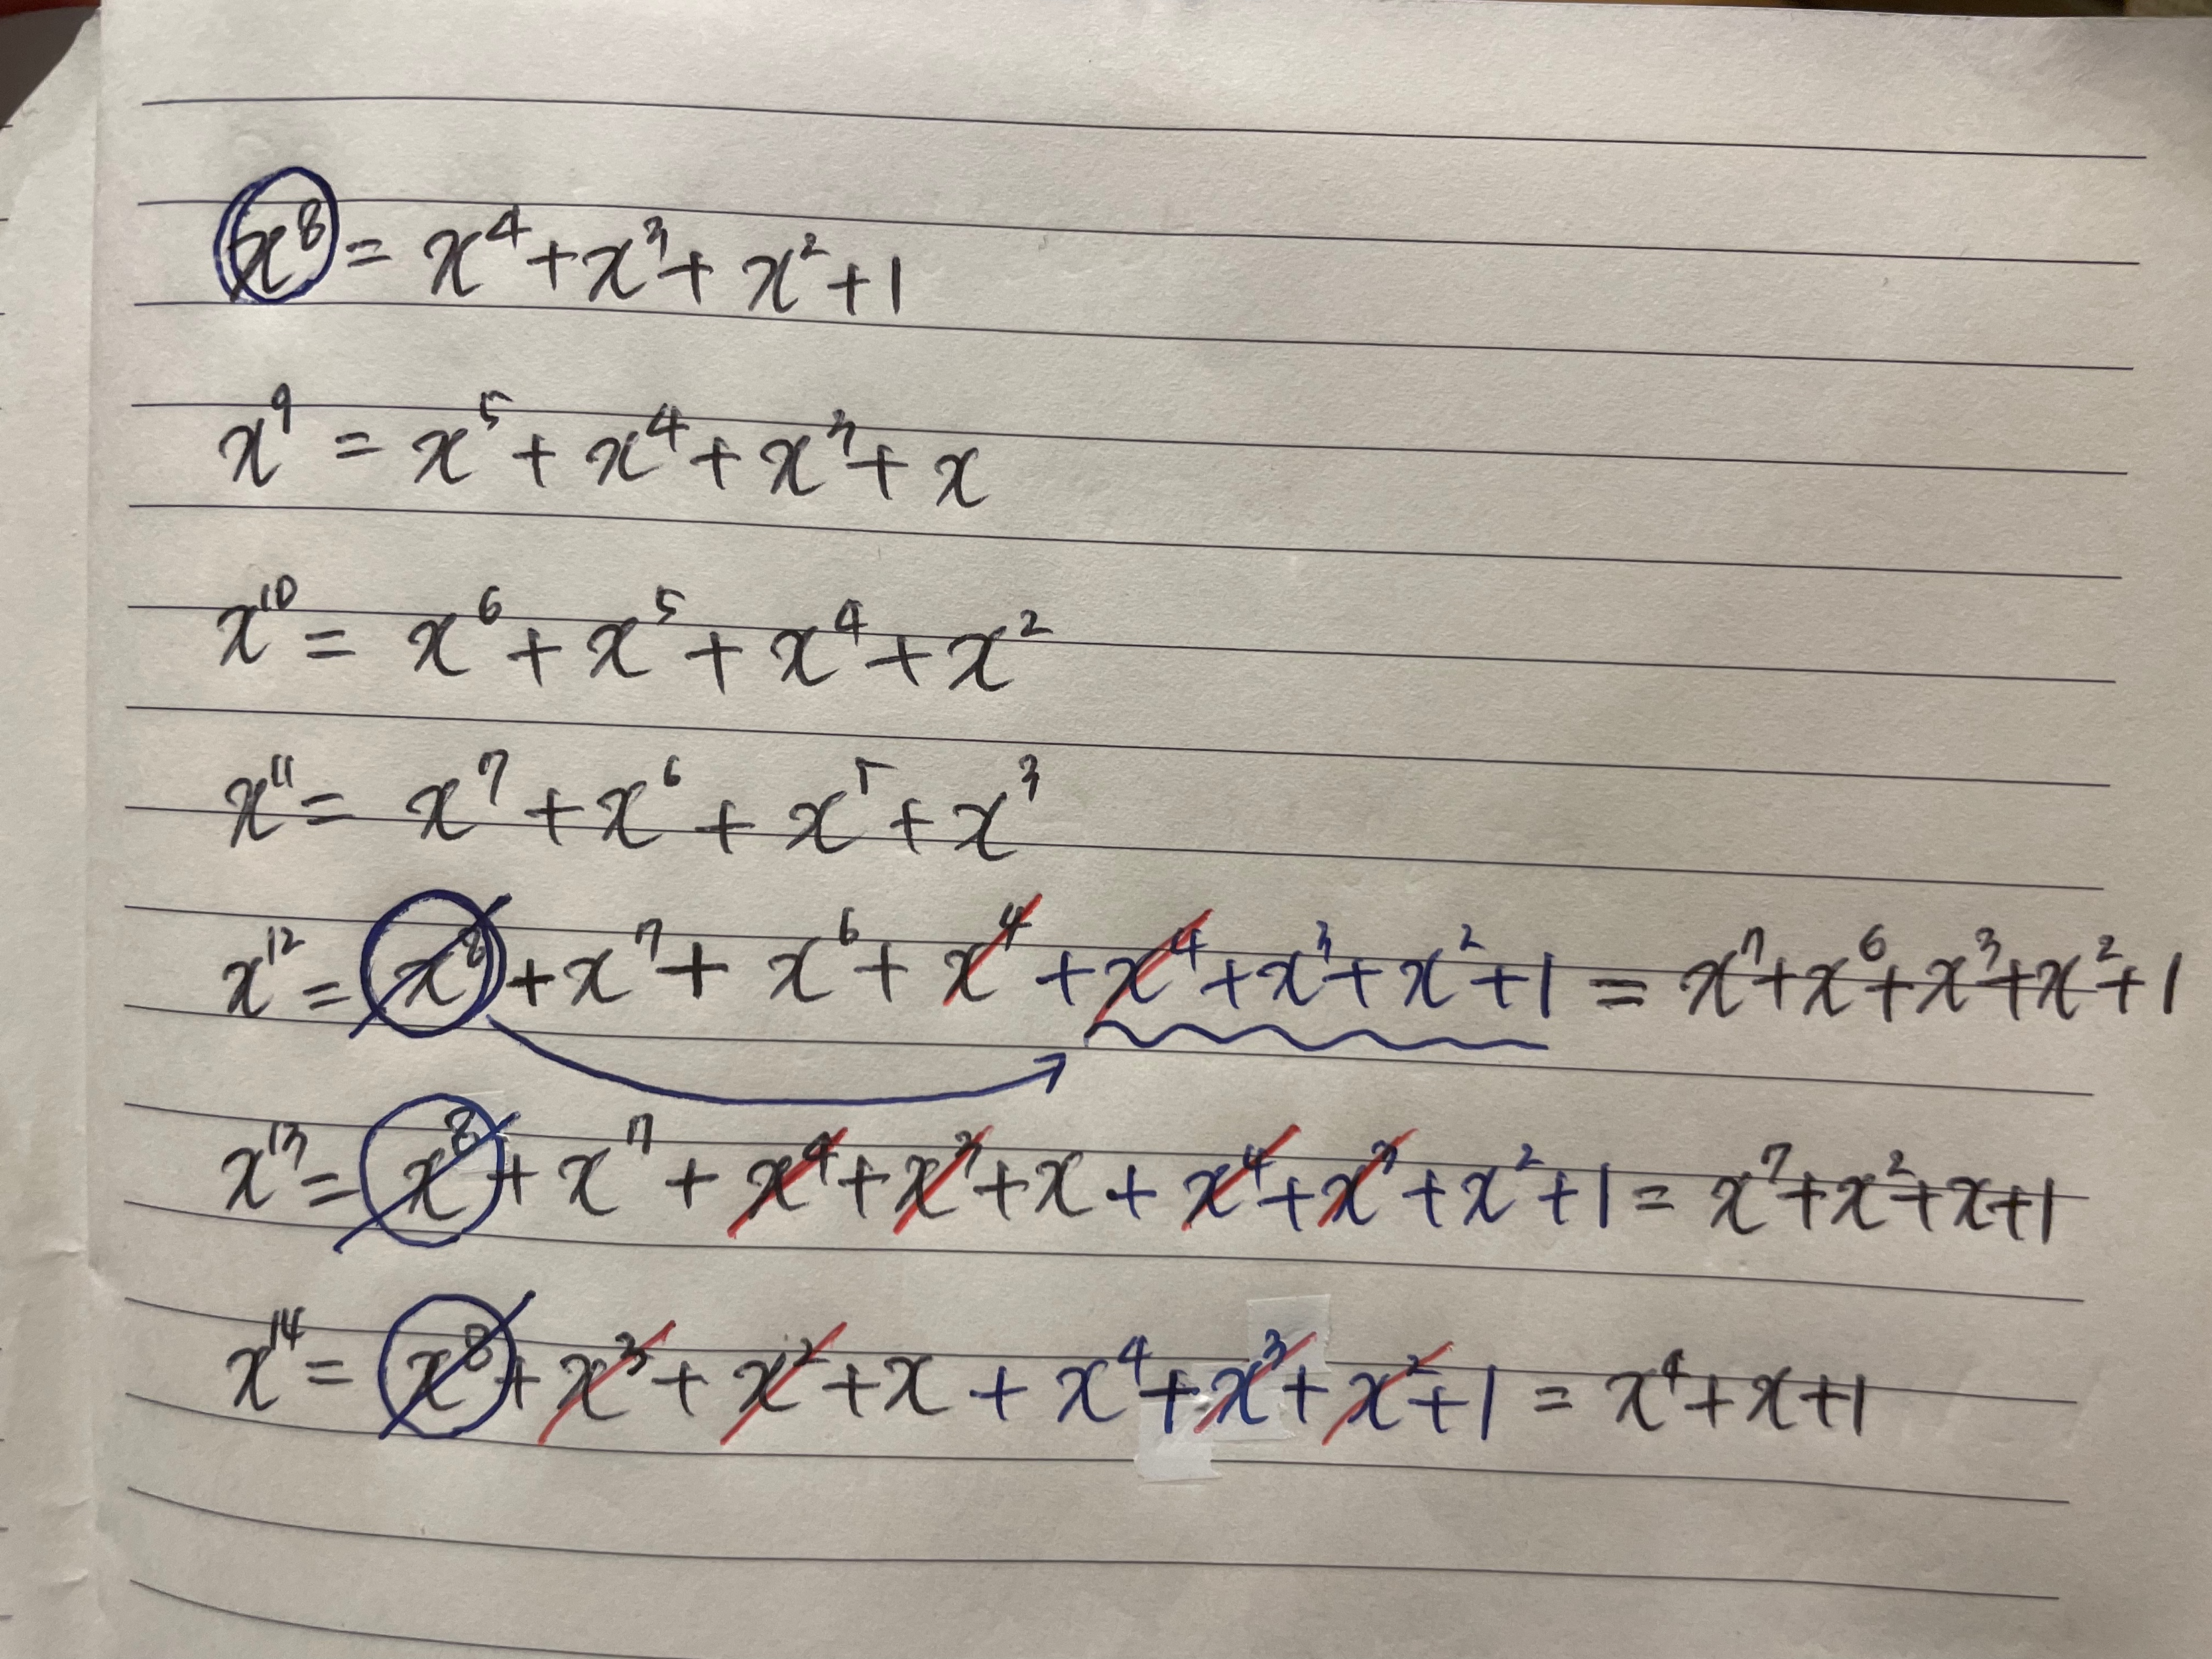 x⁸ = x⁴ + x³ + x² + 1
x⁹ = x⁵ + x⁴ + x³ + x
x¹⁰ = x⁶ + x⁵ + x⁴ + x²
x¹¹ = x⁷ + x⁶ + x⁵ + x³
x¹² = x⁸ + x⁷ + x⁶ + x⁴ + x⁴ + x³ + x² + 1 = x⁷ + x⁶ + x³ + x² + 1
x¹³ = x⁸ + x⁷ + x⁴ + x³ + x + x⁴ + x³ + x² + 1 = x⁷ + x² + x + 1
x¹⁴ = x⁸ + x³ + x² + x + x⁴ + x³ + x² + 1 = x⁴ + x + 1